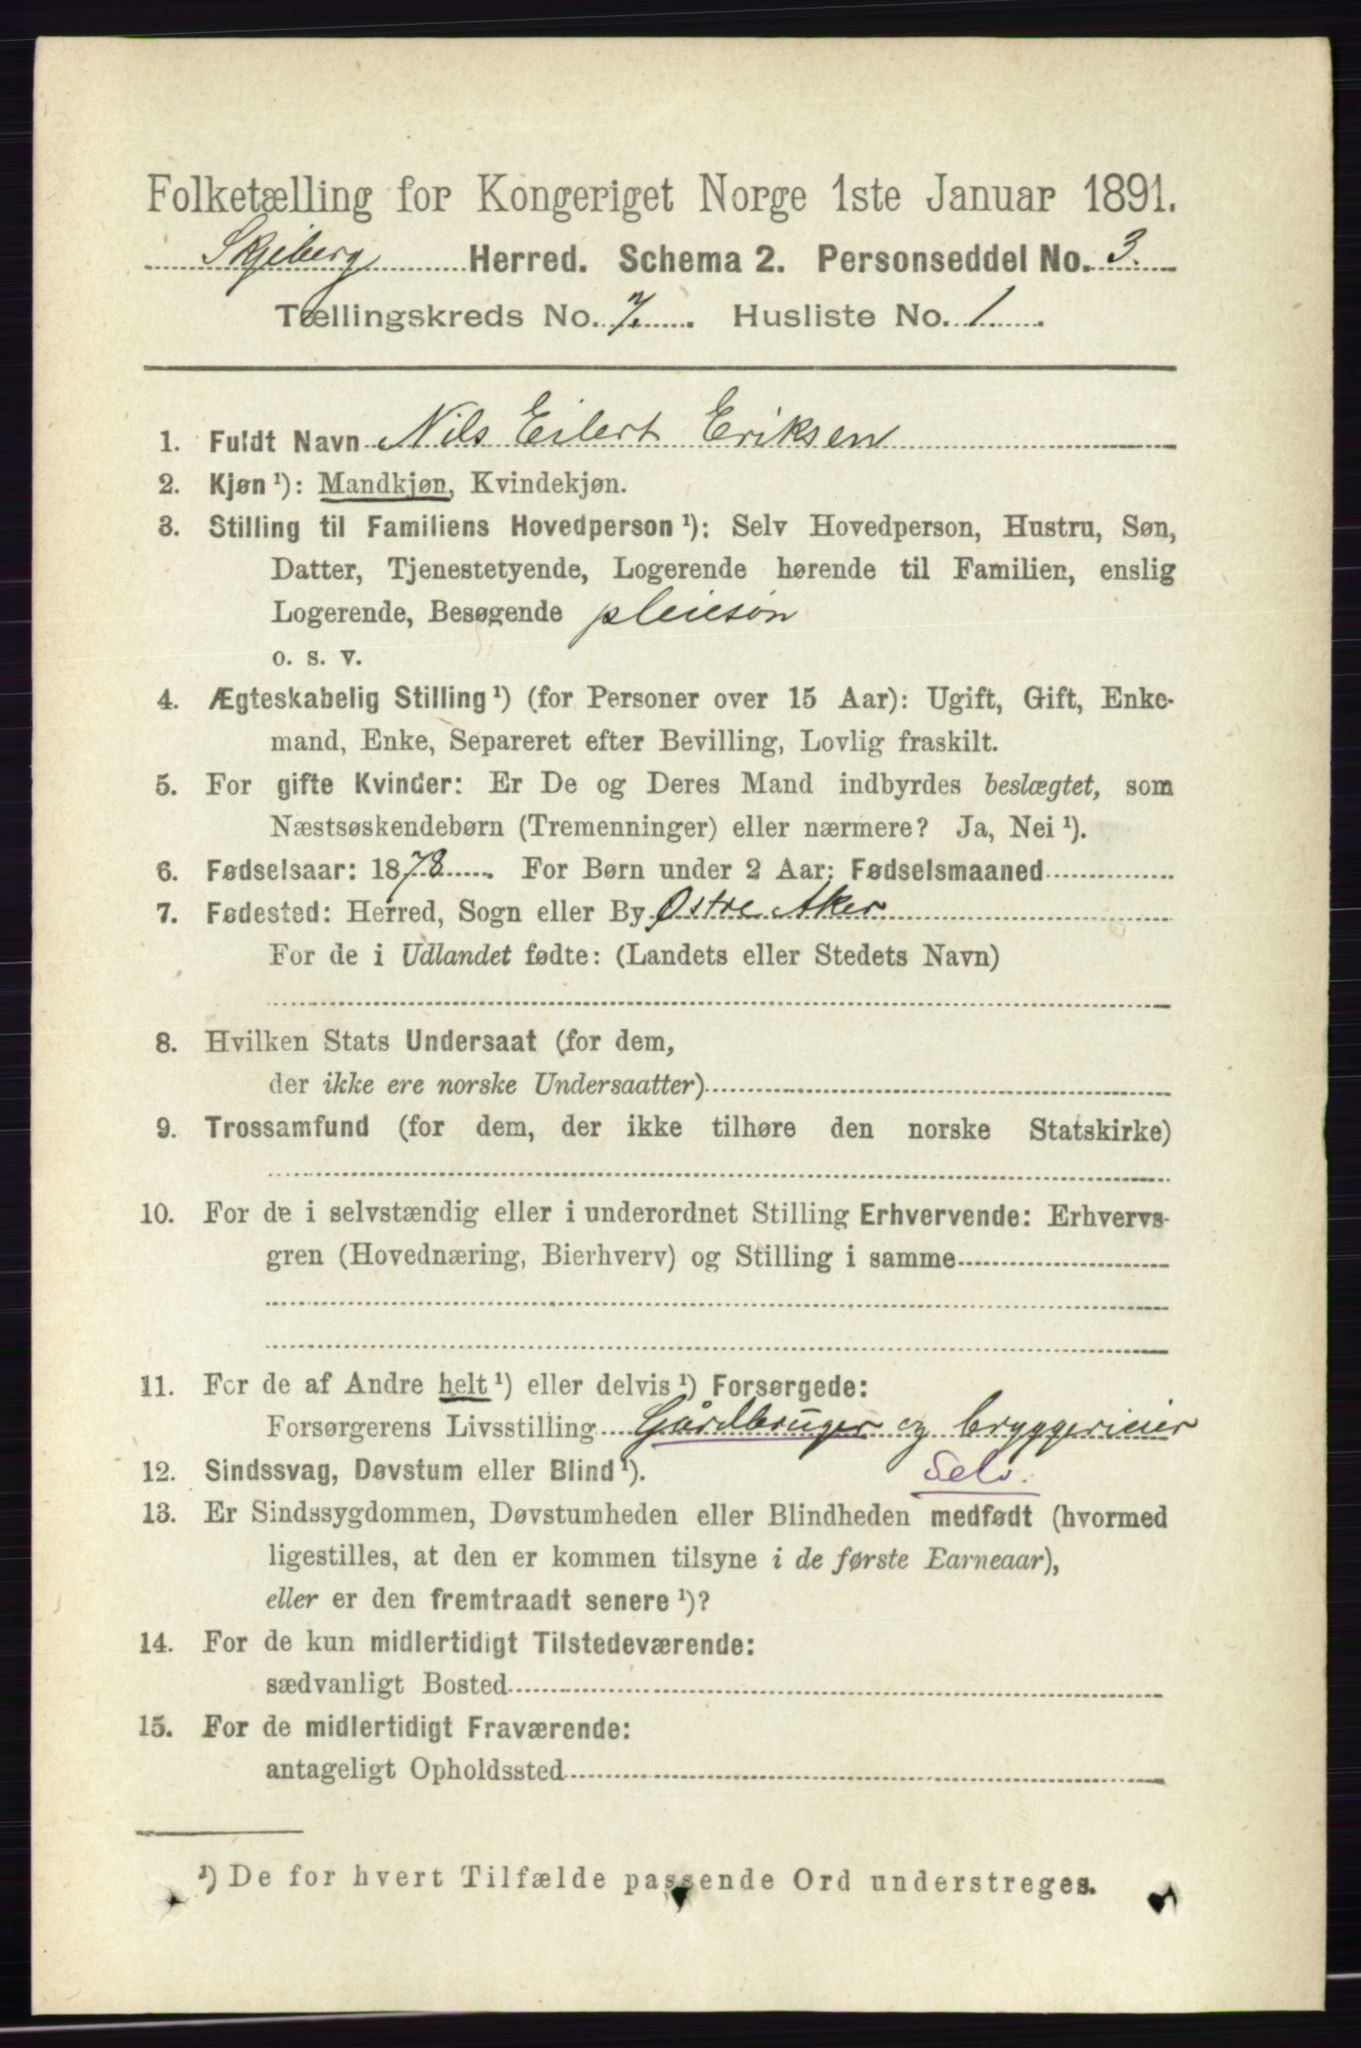 Folketælling for Kongeriget Norge 1ste Januar 1891.
Skjeberg Herred. Schema 2. Personseddel No. 3.
Tællingskreds No. 7. Husliste No. 1
1. Fuldt Navn Nils Eilert Eriksen
2. Kjøn ¹): Mandkjøn, Kvindekjøn.
3. Stilling til Familiens Hovedperson ¹): Selv Hovedperson, Hustru, Søn,
Datter, Tjenestetyende, Logerende hørende til Familien, enslig
Logerende, Besøgende pleiesøn
o. s. v.
4. Ægteskabelig Stilling ¹) (for Personer over 15 Aar): Ugift, Gift, Enke-
mand, Enke, Separeret efter Bevilling, Lovlig fraskilt.
5. For gifte Kvinder: Er De og Deres Mand indbyrdes beslægtet, som
Næstsøskendebørn (Tremenninger) eller nærmere? Ja, Nei ¹).
6. Fødselsaar: 1878. For Børn under 2 Aar: Fødselsmaaned
7. Fødested: Herred, Sogn eller By Østre Aker
For de i Udlandet fødte: (Landets eller Stedets Navn)
8. Hvilken Stats Undersaat (for dem,
der ikke ere norske Undersaatter)
9. Trossamfund (for dem, der ikke tilhøre den norske Statskirke)
10. For de i selvstændig eller i underordnet Stilling Erhvervende: Erhvervs-
gren (Hovednæring, Bierhverv) og Stilling i samme
11. For de af Andre helt ¹) eller delvis ¹) Forsørgede:
Forsørgerens Livsstilling Gårdbruger og bryggerieier
12. Sindssvag, Døvstum eller Blind ¹). Selv.
13. Er Sindssygdommen, Døvstumheden eller Blindheden medfødt (hvormed
ligestilles, at den er kommen tilsyne i de første Earneaar),
eller er den fremtraadt senere ¹)?
14. For de kun midlertidigt Tilstedeværende:
sædvanligt Bosted
15. For de midlertidigt Fraværende:
antageligt Opholdssted
¹) De for hvert Tilfælde passende Ord understreges.